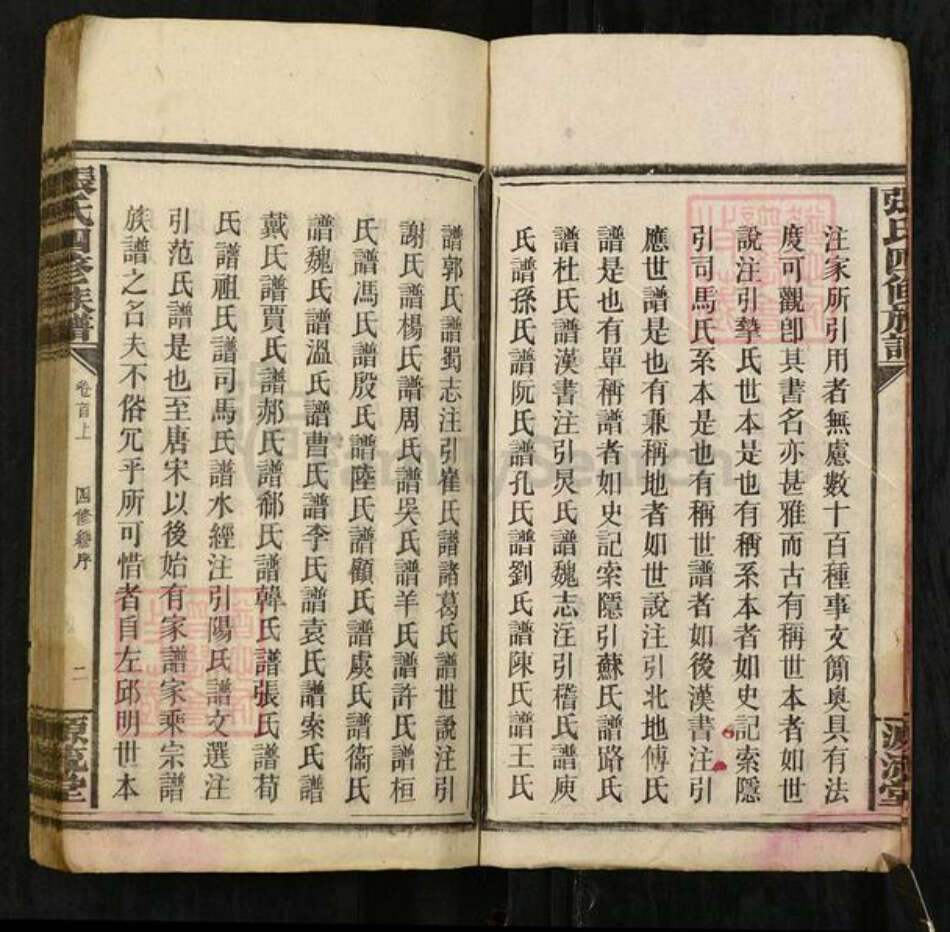 張氏四修族譜
源流堂
注家所引用者無慮數十百種事文簡奧具有法
度可觀卽其書名亦甚雅而古有稱世本者如世
說注引摯氏世本是也有稱系本者如史記索隱
引司馬氏系本是也有稱世譜者如後漢書注引
應世譜是也有兼稱地者如世說注引北地傅氏
譜是也有單稱譜者如史記索隱引蘇氏譜路氏
譜杜氏譜漢書注引炅氏譜魏志注引嵇氏譜庾
氏譜孫氏譜阮氏譜孔氏譜劉氏譜陳氏譜王氏
譜郭氏譜蜀志注引崔氏譜諸葛氏譜世說注引
謝氏譜楊氏譜周氏譜吳氏譜羊氏譜許氏譜桓
氏譜馮氏譜殷氏譜陸氏譜顧氏譜虞氏譜衞氏
譜魏氏譜溫氏譜曹氏譜李氏譜袁氏譜索氏譜
戴氏譜賈氏譜郝氏譜郗氏譜韓氏譜張氏譜荀
氏譜祖氏譜司馬氏譜水經注引陽氏譜文選注
引范氏譜是也至唐宋以後始有家譜家乘宗譜
族譜之名夫不俗冗乎所可惜者自左邱明世本
張氏四修族譜
卷首上
四修總序
二
源流堂
FamilySearch